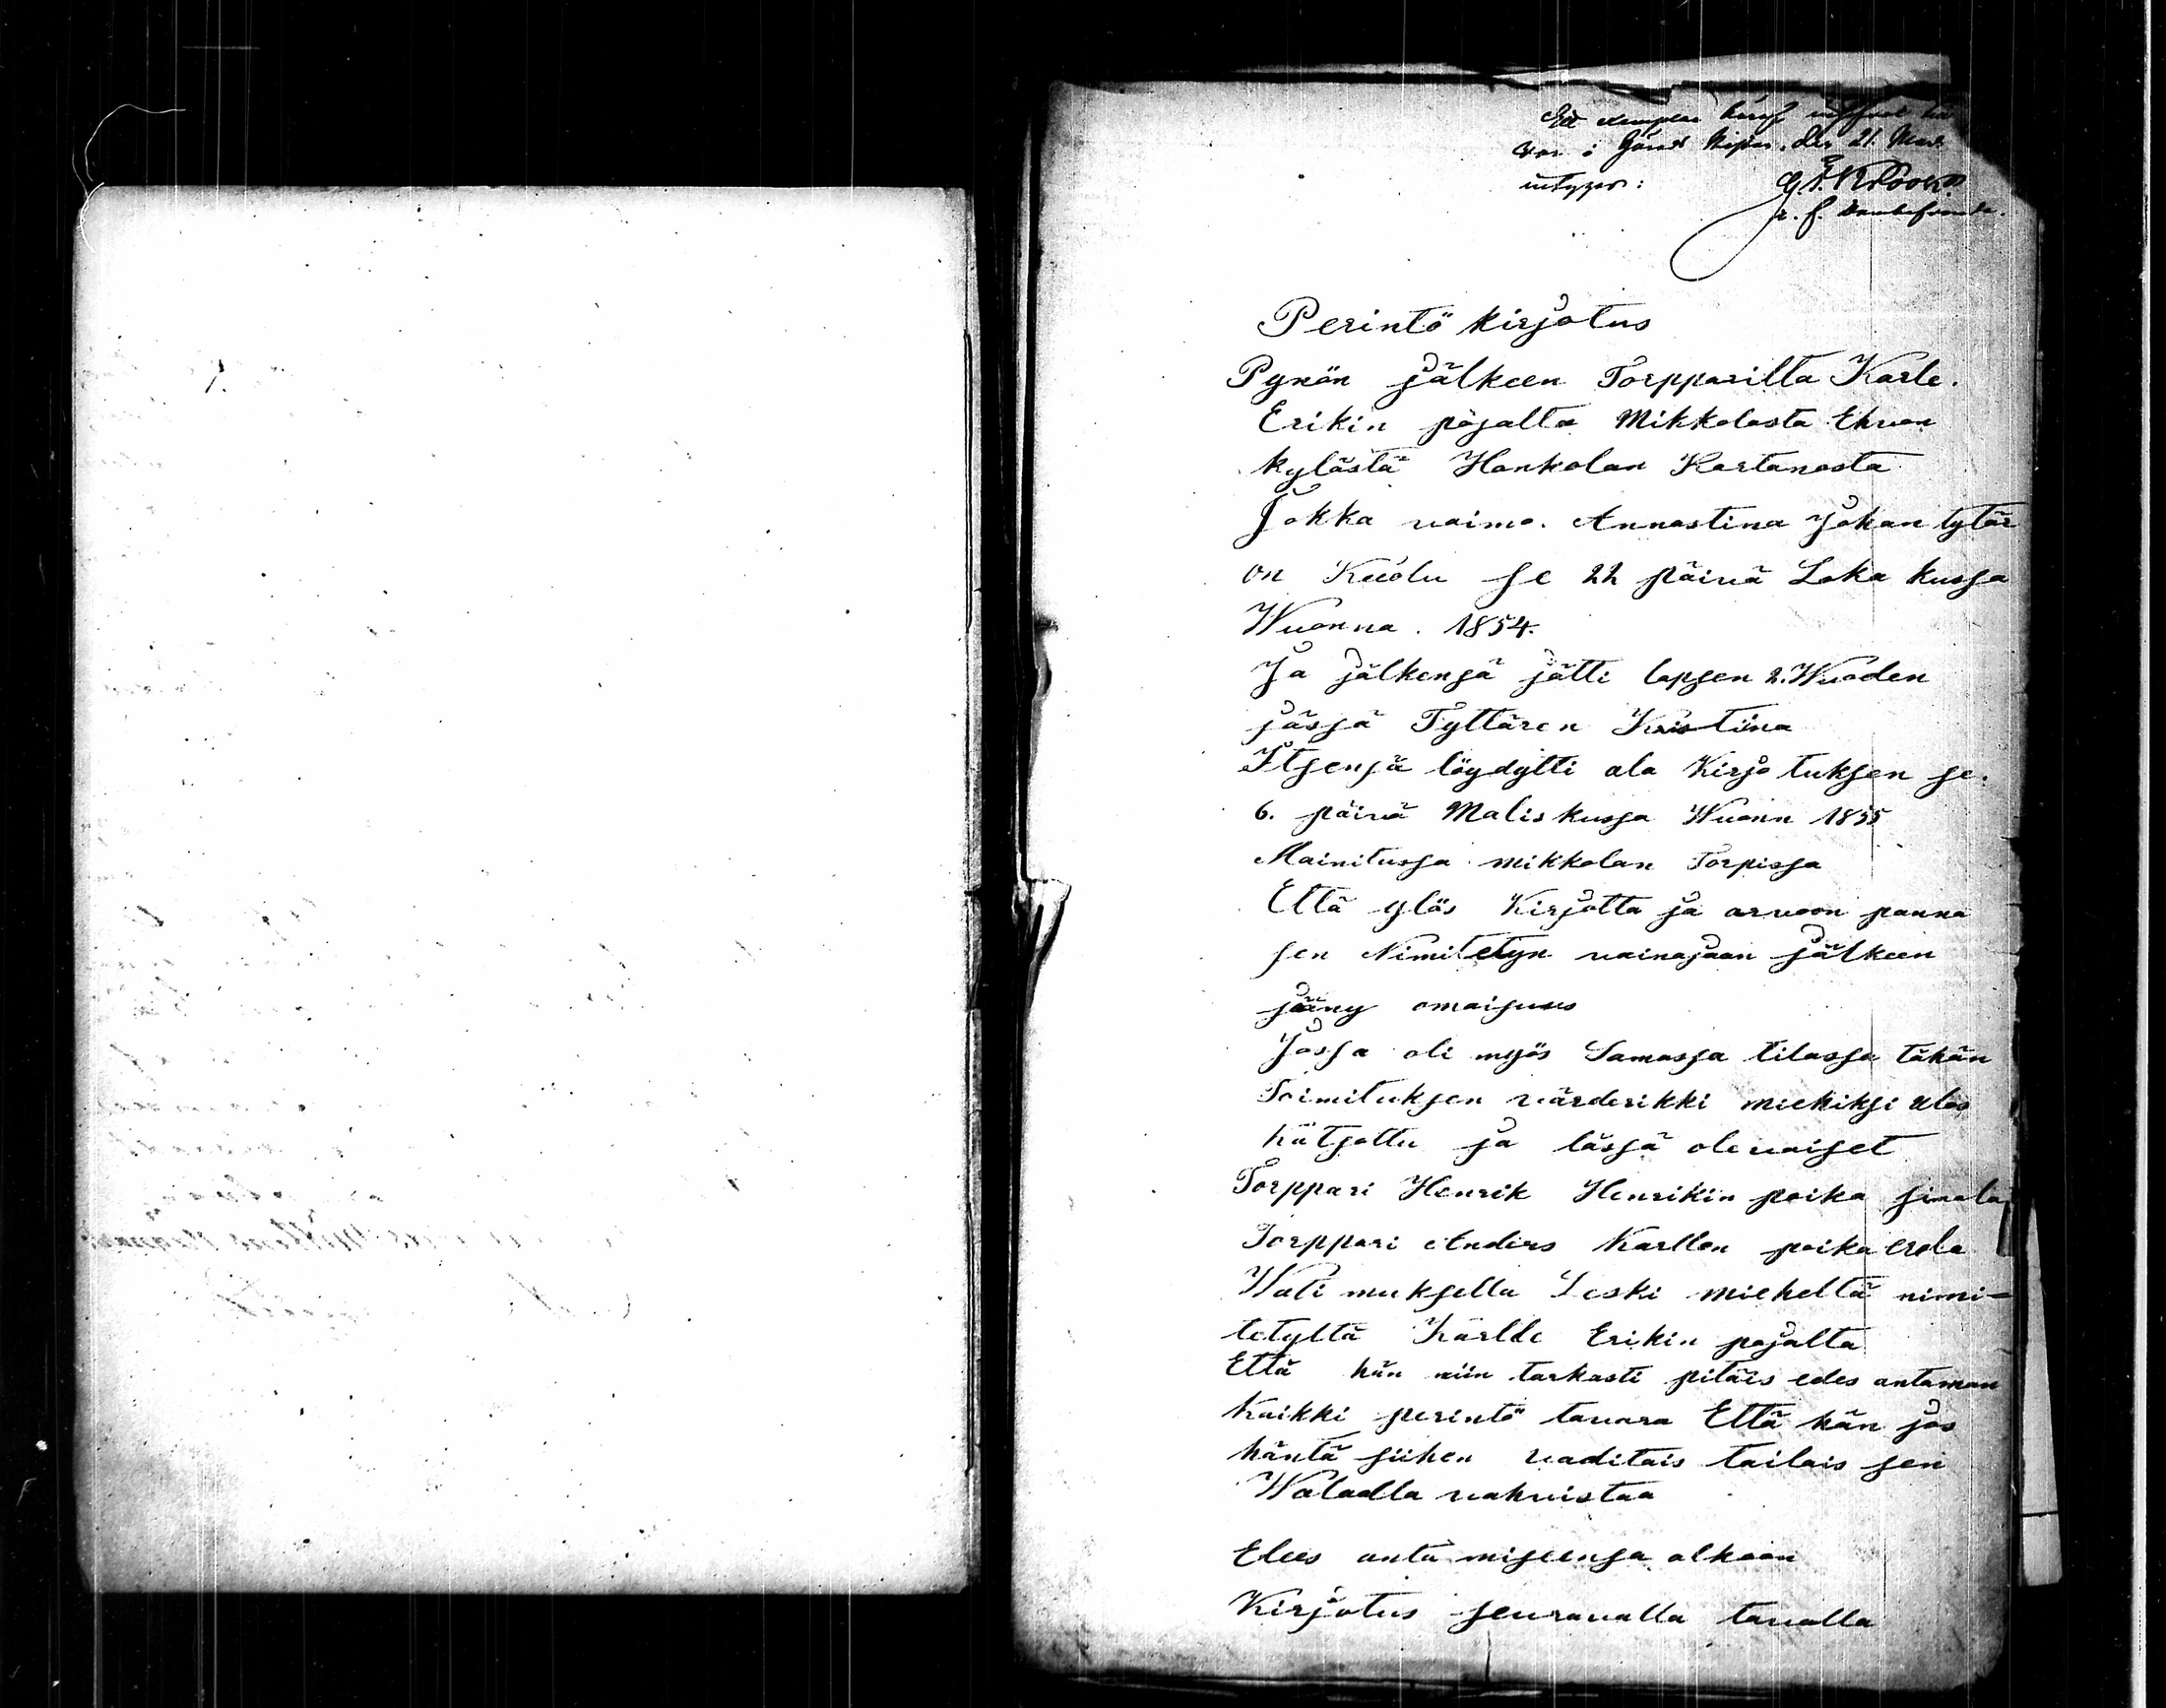 Ett exemplar häraf
var i den 21 Mars
intygar: G. E. Krook
Perintö kirjotus
Pynön jälkeen Torpparilta Karle.
Erikin pojalta Mikkolasta Ehron
kylästä Honkolan Kartanosta
Jokka vaimo. Annastina Johan tytär
on Kuolu se 22 päivä Loka kussa
Wuonna. 1854.
Ja jälkensä jätti lapsen 2. Wuoden
jässä Tyttären Kristiina
Itsensä löydytti ala Kirjo tuksen se.
6. päivä Malis kussa Wuonn 1855
Mainitussa mikkolan Torpissa
Että ylös Kirjotta ja arvoon panna
sen Nimitetyn vainajaan jälkeen
jääny omaisuus
Jossa oli myös Samassa tilassa tähän
Toimituksen värderikki miehiksi ulos
kutsottu ja läsjä olevaiset
Torppari Henrik Henrikin poika simola
Torppari Anders Karllen poika erola
Wali muksella Leski mieheltä nimi-
tetyltä Karlle Erikin pojalta
Että hän niin tarkasti pitäis edes antaman
Kaikki perintö tavara Että hän jos
häntä siihen vaditais taitais sen
Walaalla vahvistaa
Edes anta miseensa alkoon
Kirjotus seuravalla tavalla